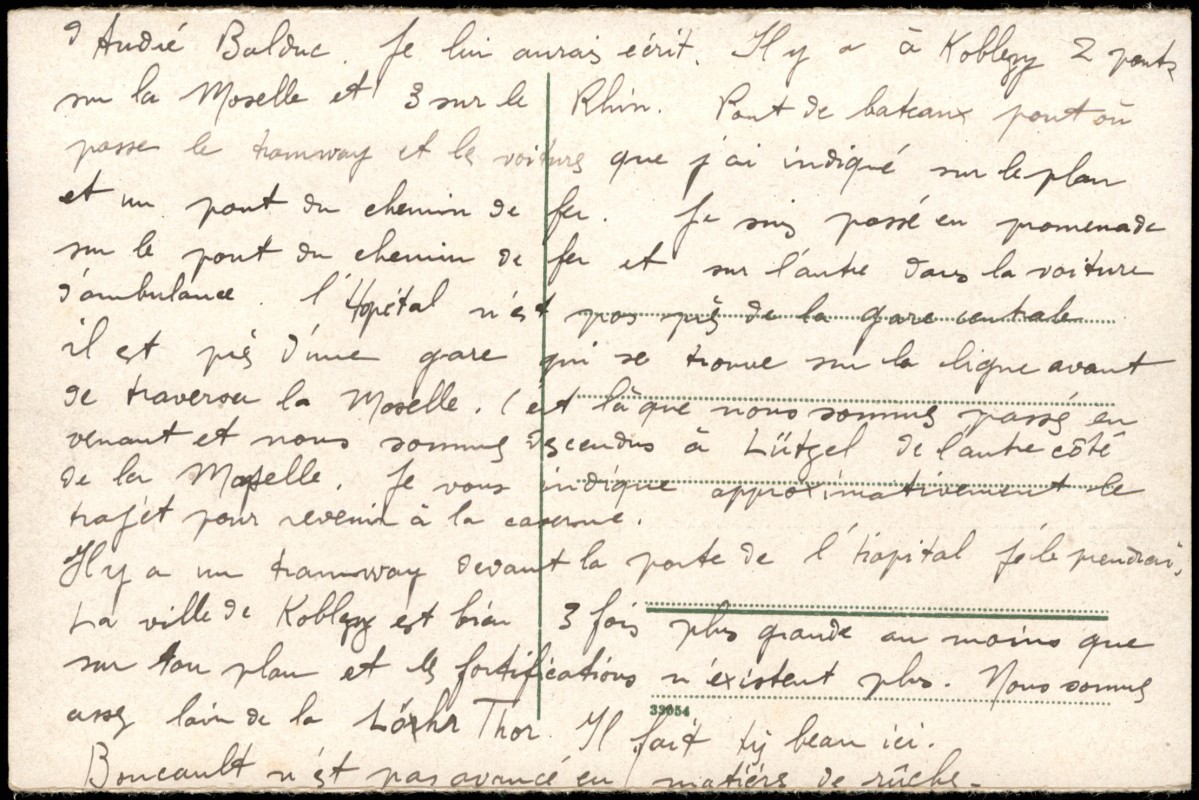 d'André Balduc. Je lui aurais écrit. Il y a à Koblenz 2 ponts
sur la Moselle et 3 sur le Rhin. Pont de bateaux pont où
passe le tramway et les voitures que j'ai indiqué sur le plan
et un pont du chemin de fer. Je suis passé en promenade
sur le pont du chemin de fer et sur l'autre dans la voiture
d'ambulance. l'Hopital n'est pas près de la gare centrale
il est près d'une gare qui se trouve sur la ligne avant
de traverser la Moselle. C'est là que nous sommes passés en
venant et nous sommes descendus à Lützel de l'autre côté
de la Moselle. Je vous indique approximativement le
trajet pour revenir à la caserne.
Il y a un tramway devant la porte de l'hopital je le prendrai.
La ville de Koblenz est bien 3 fois plus grande au moins que
sur ton plan et les fortifications n'existent plus. Nous sommes
assez loin de la Löhr Thor. Il fait très beau ici.
33054
Boucault n'est pas avancé en matière de rûche.